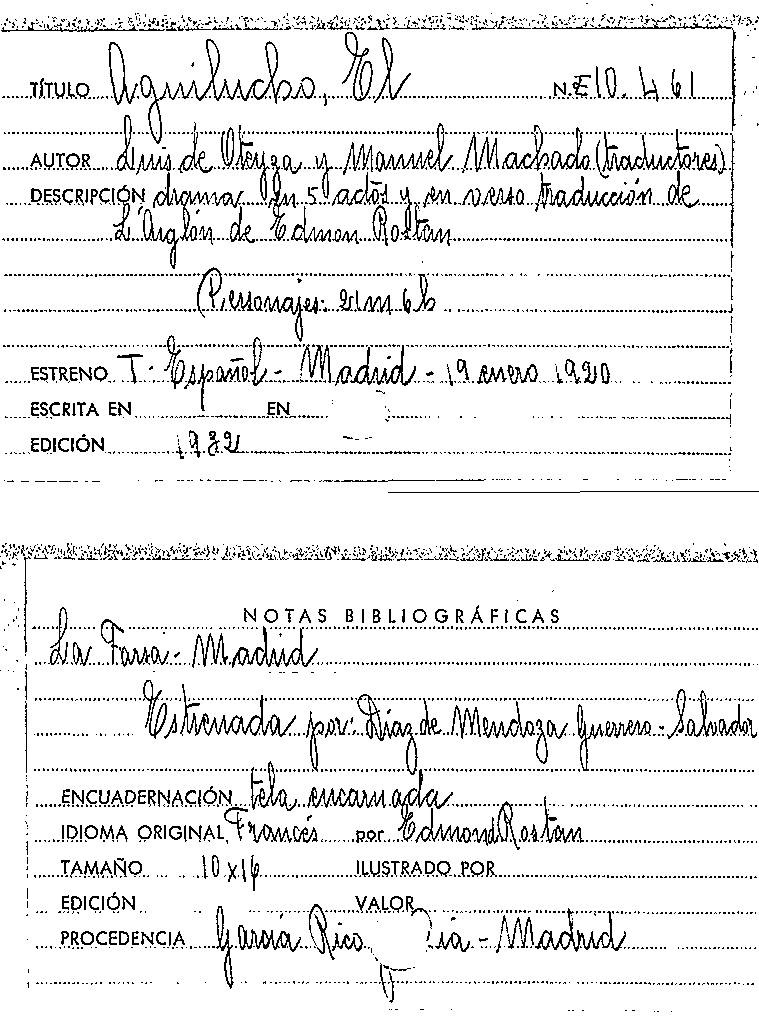 TÍTULO Aguilucho, El N.E 10.461
AUTOR Luis de Oteyza y Manuel Machado (traductores)
DESCRIPCIÓN drama en 5 actos y en verso traducción de
L'Aiglón de Edmon Rostan
Personajes: 21m 6h
ESTRENO T. Español - Madrid - 19 enero 1920
ESCRITA EN EN
EDICIÓN 1932
NOTAS BIBLIOGRÁFICAS
La Farsa - Madrid
Estrenada por: Díaz de Mendoza Guerrero - Salvador
ENCUADERNACIÓN tela encarnada
IDIOMA ORIGINAL Francés por Edmond Rostan
TAMAÑO 10x16 ILUSTRADO POR
EDICIÓN VALOR
PROCEDENCIA García Rico - Madrid